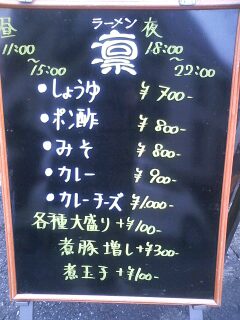 ラーメン
凛
昼
11:00
~15:00
夜
18:00
~22:00
・しょうゆ ¥700-
・ポン酢 ¥800-
・みそ ¥800-
・カレー ¥900-
・カレーチーズ ¥1,000-
各種大盛り+¥100-
煮豚増し+¥300-
煮玉子+¥100-